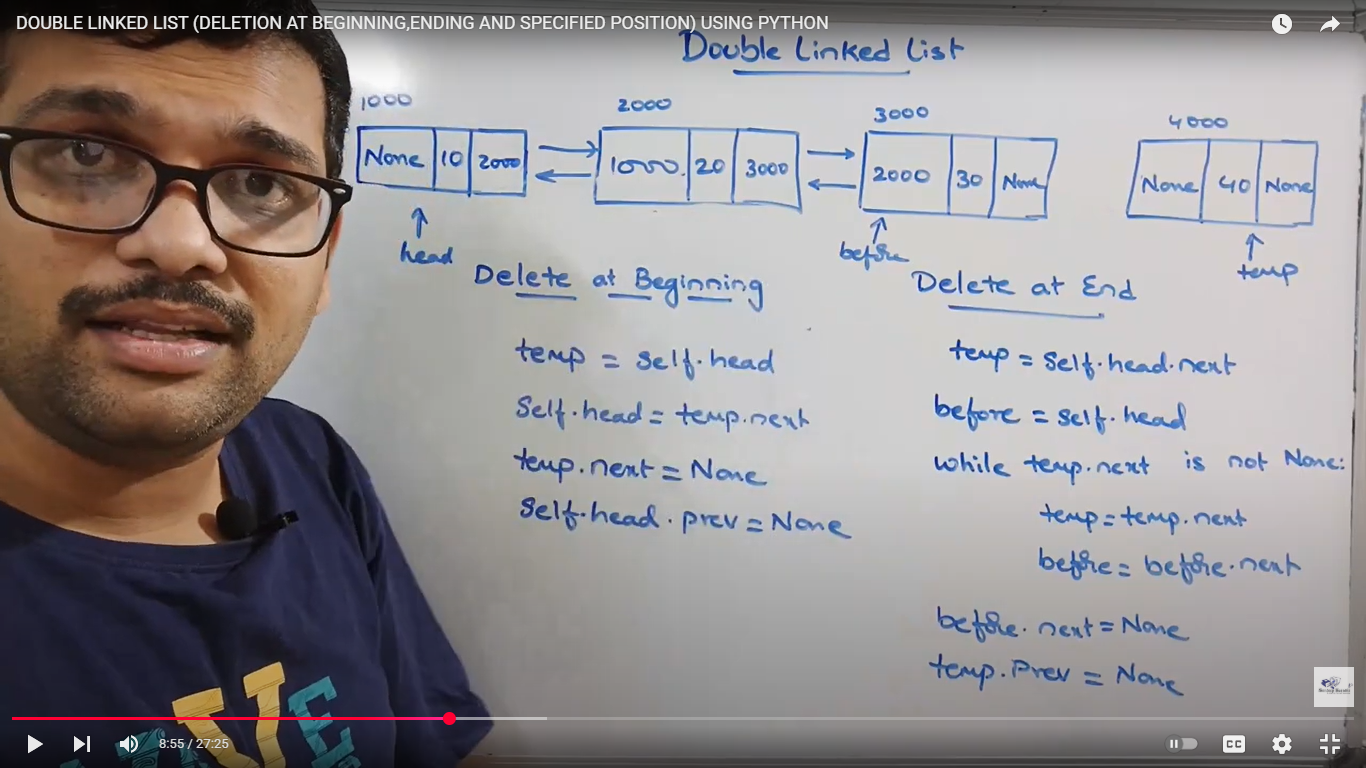 DOUBLE LINKED LIST (DELETION AT BEGINNING,ENDING AND SPECIFIED POSITION) USING PYTHON
Double Linked List
1000
2000
3000
4000
None 10 2000
1000 20 3000
2000 30 None
None 40 None
head
before
temp
Delete at Beginning
temp = self.head
Self.head = temp.next
temp.next = None
Self.head.prev = None
Delete at End
temp = self.head.next
before = self.head
while temp.next is not None:
temp = temp.next
before = before.next
before.next = None
temp.Prev = None
VE
8:55 / 27:25
CC